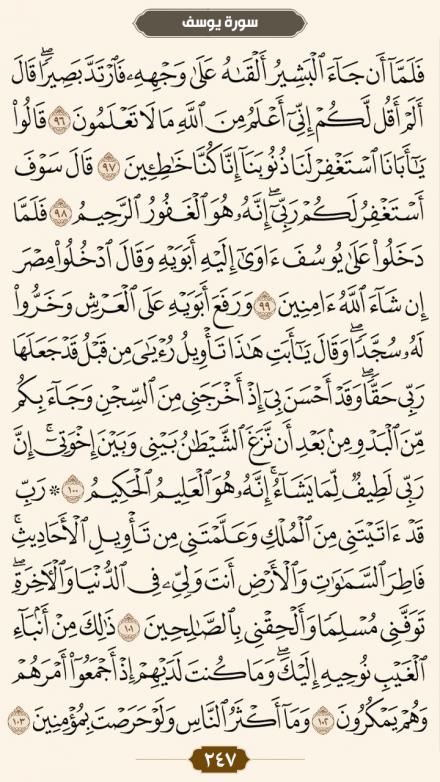 سورة يوسف
فَلَمَّآ أَن جَآءَ ٱلۡبَشِيرُ أَلۡقَىٰهُ عَلَىٰ وَجۡهِهِۦ فَٱرۡتَدَّ بَصِيرٗاۖ قَالَ
أَلَمۡ أَقُل لَّكُمۡ إِنِّيٓ أَعۡلَمُ مِنَ ٱللَّهِ مَا لَا تَعۡلَمُونَ ٩٦ قَالُواْ
يَٰٓأَبَانَا ٱسۡتَغۡفِرۡ لَنَا ذُنُوبَنَآ إِنَّا كُنَّا خَٰطِـِٔينَ ٩٧ قَالَ سَوۡفَ
أَسۡتَغۡفِرُ لَكُمۡ رَبِّيٓۖ إِنَّهُۥ هُوَ ٱلۡغَفُورُ ٱلرَّحِيمُ ٩٨ فَلَمَّا
دَخَلُواْ عَلَىٰ يُوسُفَ ءَاوَىٰٓ إِلَيۡهِ أَبَوَيۡهِ وَقَالَ ٱدۡخُلُواْ مِصۡرَ
إِن شَآءَ ٱللَّهُ ءَامِنِينَ ٩٩ وَرَفَعَ أَبَوَيۡهِ عَلَى ٱلۡعَرۡشِ وَخَرُّواْ
لَهُۥ سُجَّدٗاۖ وَقَالَ يَٰٓأَبَتِ هَٰذَا تَأۡوِيلُ رُءۡيَٰيَ مِن قَبۡلُ قَدۡ جَعَلَهَا
رَبِّي حَقّٗاۖ وَقَدۡ أَحۡسَنَ بِيٓ إِذۡ أَخۡرَجَنِي مِنَ ٱلسِّجۡنِ وَجَآءَ بِكُم
مِّنَ ٱلۡبَدۡوِ مِنۢ بَعۡدِ أَن نَّزَغَ ٱلشَّيۡطَٰنُ بَيۡنِي وَبَيۡنَ إِخۡوَتِيٓۚ إِنَّ
رَبِّي لَطِيفٞ لِّمَا يَشَآءُۚ إِنَّهُۥ هُوَ ٱلۡعَلِيمُ ٱلۡحَكِيمُ ١٠٠ ۞ رَبِّ
قَدۡ ءَاتَيۡتَنِي مِنَ ٱلۡمُلۡكِ وَعَلَّمۡتَنِي مِن تَأۡوِيلِ ٱلۡأَحَادِيثِۚ
فَاطِرَ ٱلسَّمَٰوَٰتِ وَٱلۡأَرۡضِ أَنتَ وَلِيِّۦ فِي ٱلدُّنۡيَا وَٱلۡأٓخِرَةِۖ
تَوَفَّنِي مُسۡلِمٗا وَأَلۡحِقۡنِي بِٱلصَّٰلِحِينَ ١٠١ ذَٰلِكَ مِنۡ أَنۢبَآءِ
ٱلۡغَيۡبِ نُوحِيهِ إِلَيۡكَۖ وَمَا كُنتَ لَدَيۡهِمۡ إِذۡ أَجۡمَعُوٓاْ أَمۡرَهُمۡ
وَهُمۡ يَمۡكُرُونَ ١٠٢ وَمَآ أَكۡثَرُ ٱلنَّاسِ وَلَوۡ حَرَصۡتَ بِمُؤۡمِنِينَ ١٠٣
٢٤٧